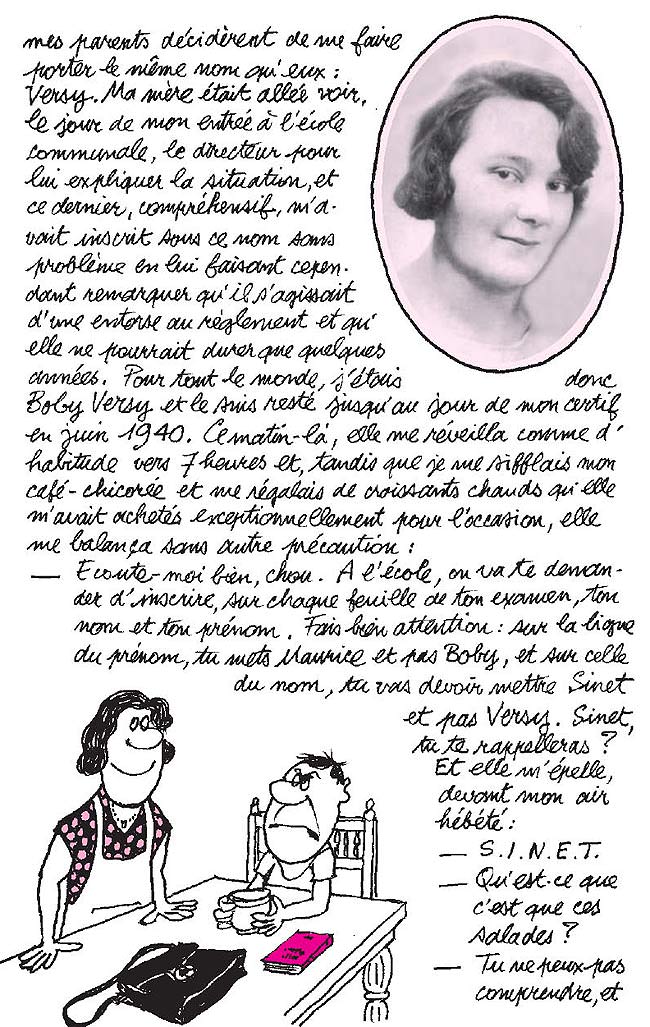 mes parents décidèrent de me faire
porter le même nom qu'eux :
Versy. Ma mère était allée voir,
le jour de mon entrée à l'école
communale, le directeur pour
lui expliquer la situation, et
ce dernier, compréhensif, m'a-
vait inscrit sous ce nom sans
problème en lui faisant cepen-
dant remarquer qu'il s'agissait
d'une entorse au règlement et qu'
elle ne pourrait durer que quelques
années. Pour tout le monde, j'étais donc
Boby Versy et le suis resté jusqu'au jour de mon certif
en juin 1940. Ce matin-là, elle me réveilla comme d'
habitude vers 7 heures et, tandis que je me sifflais mon
café-chicorée et me régalais de croissants chauds qu'elle
m'avait achetés exceptionnellement pour l'occasion, elle
me balança sans autre précaution :
— Ecoute-moi bien, chou. A l'école, on va te deman-
der d'inscrire, sur chaque feuille de ton examen, ton
nom et ton prénom. Fais bien attention : sur la ligne
du prénom, tu mets Maurice et pas Boby, et sur celle
du nom, tu vas devoir mettre Sinet
et pas Versy. Sinet,
tu te rappelleras ?
Et elle m'épelle,
devant mon air
hébété :
— S.I.N.E.T.
— Qu'est-ce que
c'est que ces
salades ?
— Tu ne peux pas
comprendre, et